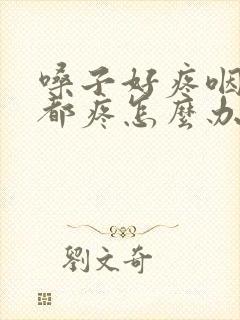 嗓子好疼咽
都疼怎麼办
劉文奇